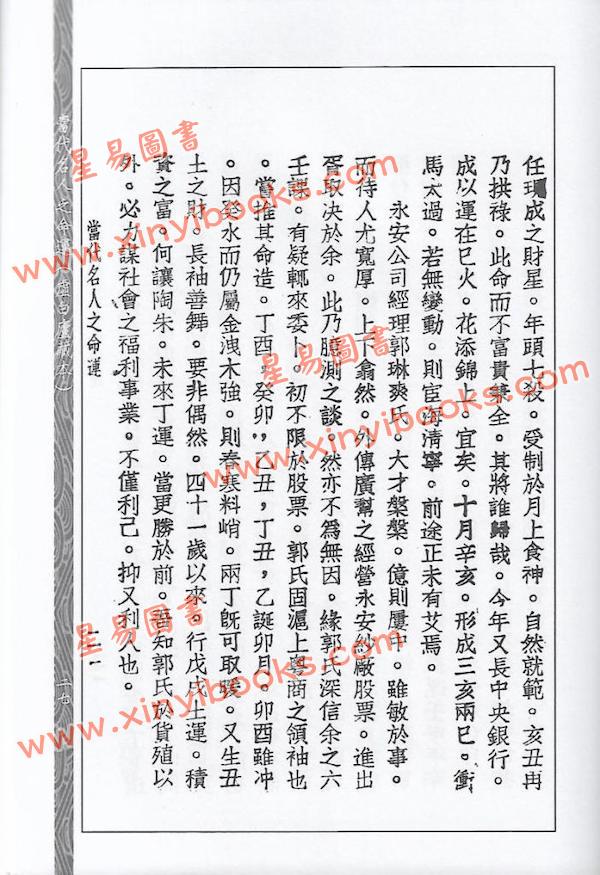 任珮成之財星。年頭七殺。受制於月上食神。自然就範。亥丑冉
乃拱祿。此命而不富貴兼全。其將誰歸哉。今年又長中央銀行。
成以運在巳火。花添錦上。宜矣。十月辛亥。形成三亥兩巳。衝
馬太過。若無變動。則宦海清寧。前途正未有艾焉。
永安公司經理郭琳爽氏。大才槃槃。億則屢中。雖敏於事。
而待人尤寬厚。上下翕然。外傳廣幫之經營永安紗廠股票。進出
胥取決於余。此乃臆測之談。然亦不為無因。緣郭氏深信余之六
壬課。有疑輒來委卜。初不限於股票。郭氏固滬上粵商之領袖也
。嘗推其命造。丁酉，癸卯，乙丑，丁丑，乙誕卯月。卯酉雖冲
。因癸水而仍屬金洩木強。則春寒料峭。兩丁旣可取暖。又生丑
土之財。長袖善舞。要非偶然。四十一歲以來。行戊戌土運。積
資之富。何讓陶朱。未來丁運。當更勝於前。吾知郭氏於貨殖以
外。必力謀社會之福利事業。不僅利己。抑又利人也。
當代名人之命運
二一
當代名人之命運
二七
星易圖書
www.xinyibooks.com
星易圖書
www.xinyibooks.com
星易圖書
www.xinyibooks.com